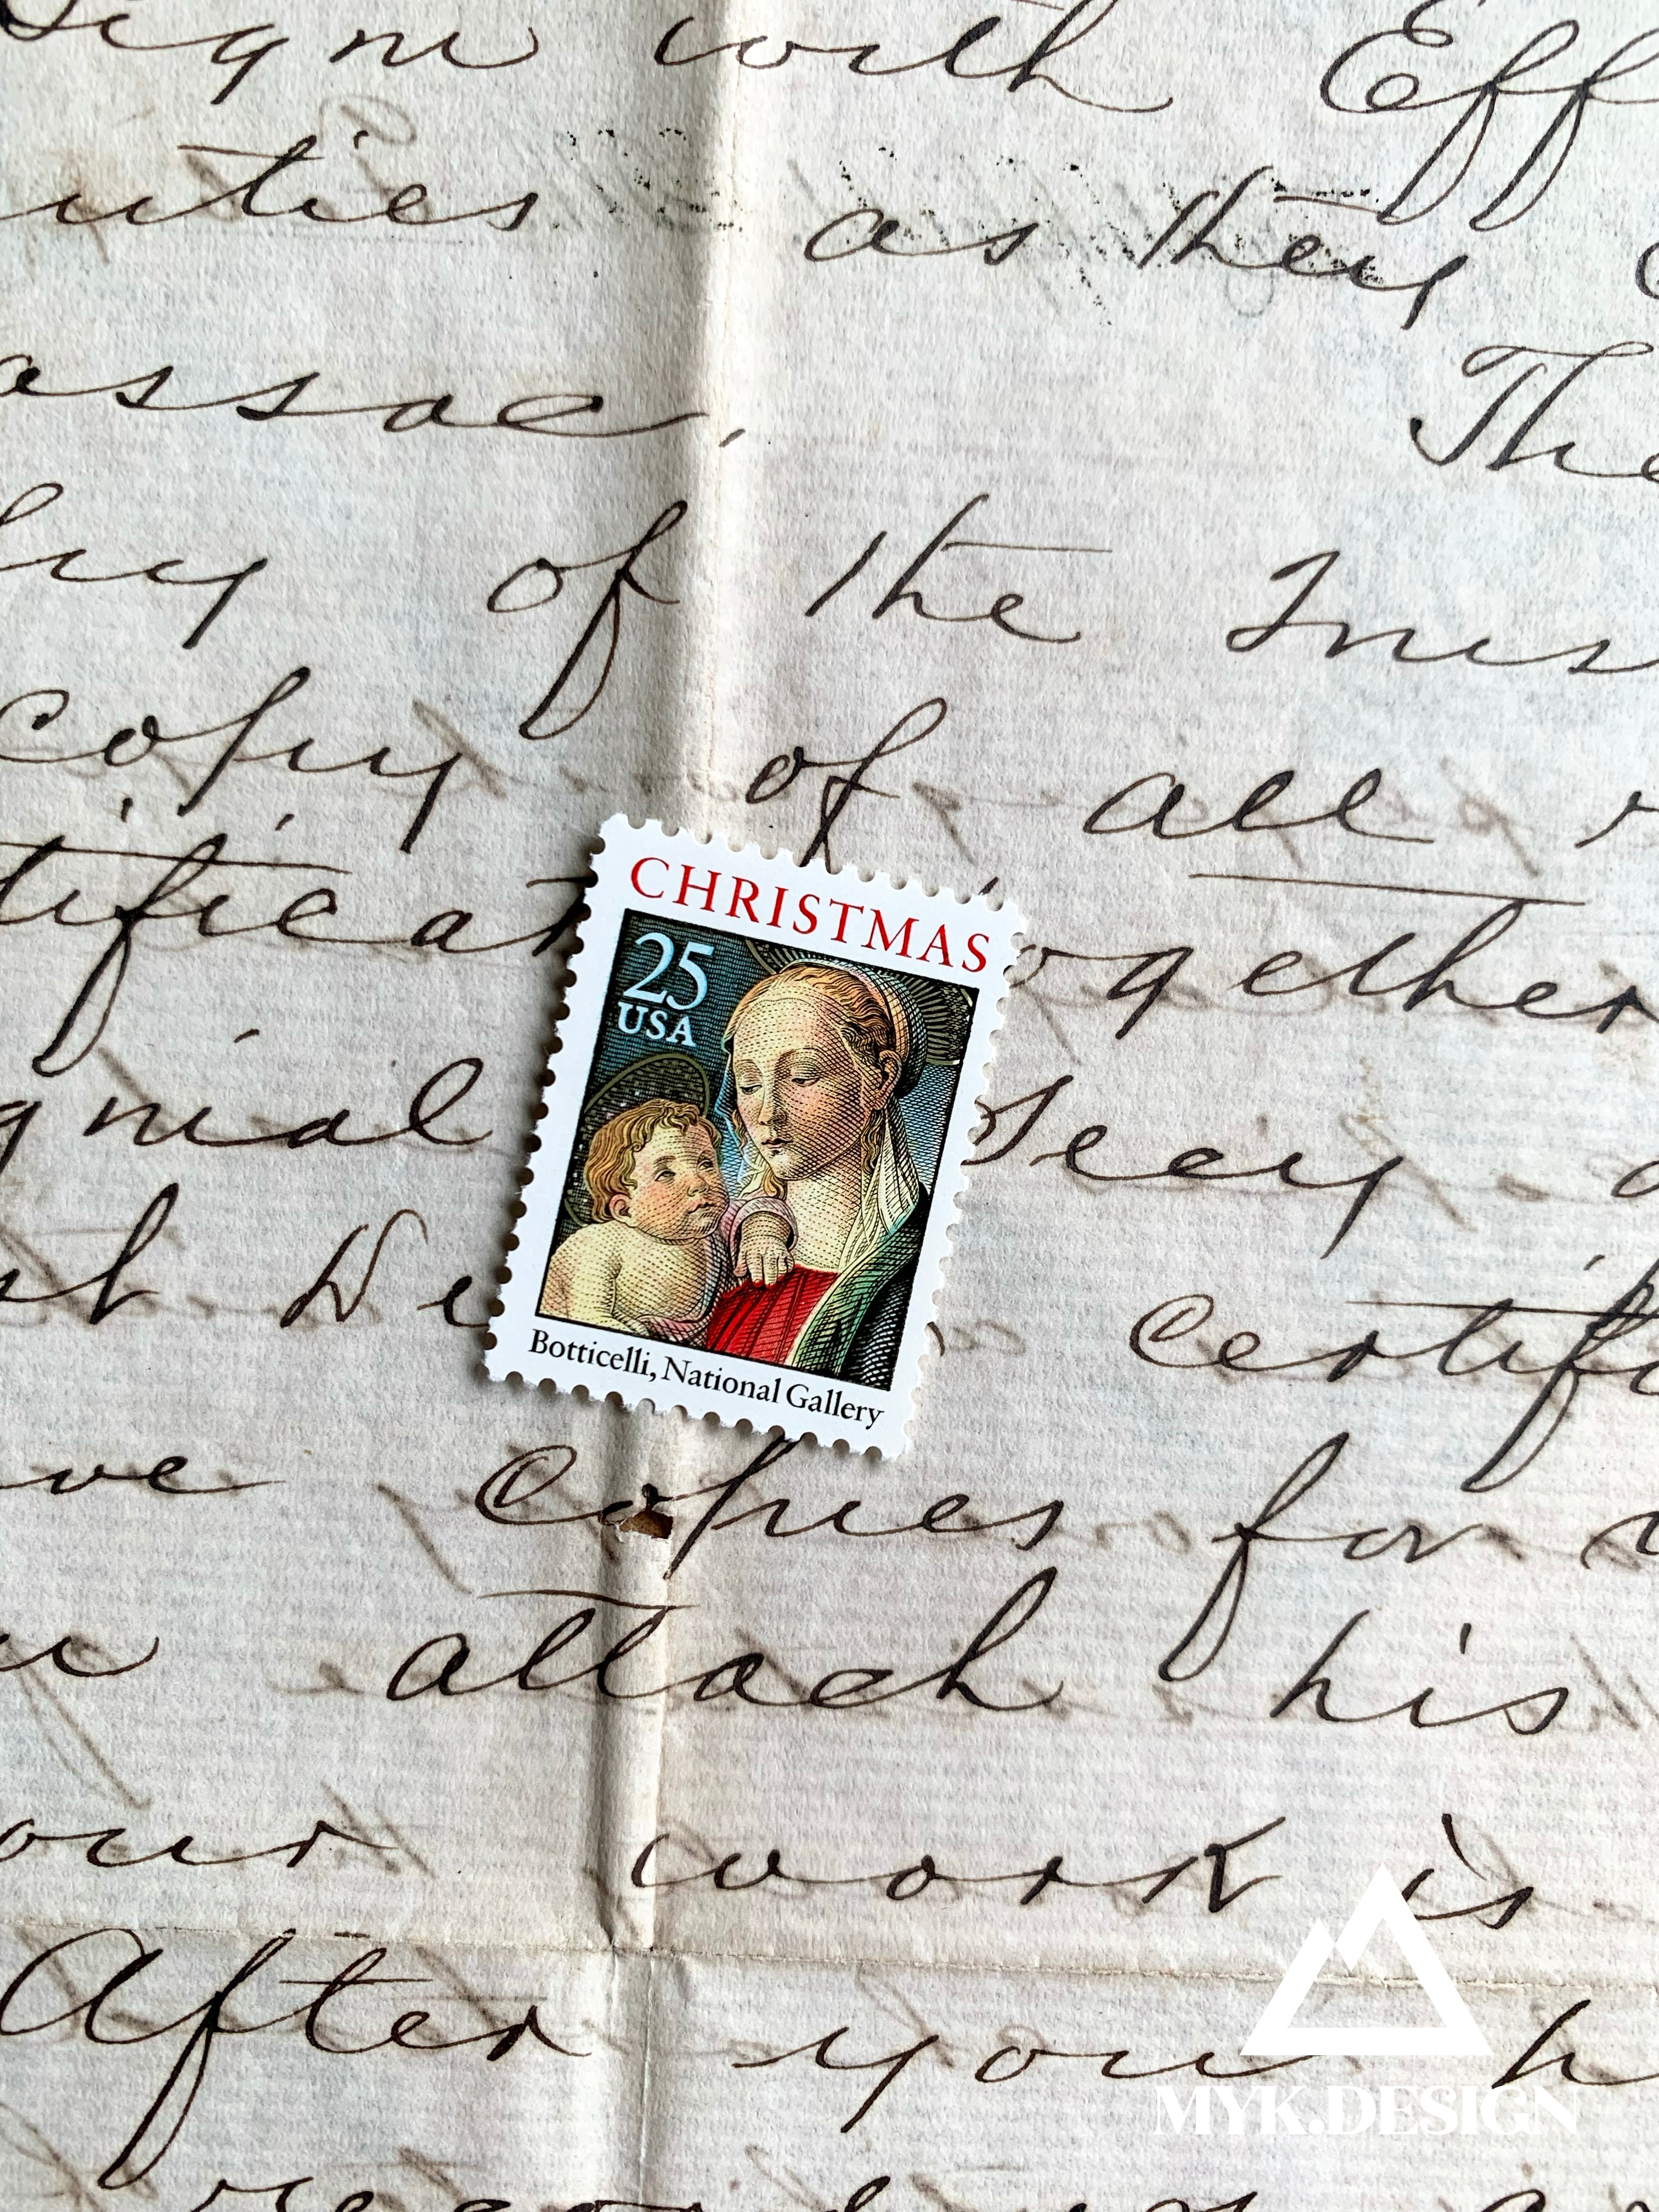 sign with Eff
uties as they
assoc, The
of the Ins
copy of all
tificat ogether
gnial Secy
st De certifi
ve Copies for
attach his
our work is
After you h
CHRISTMAS
25
USA
Botticelli, National Gallery
MYK.DESIGN